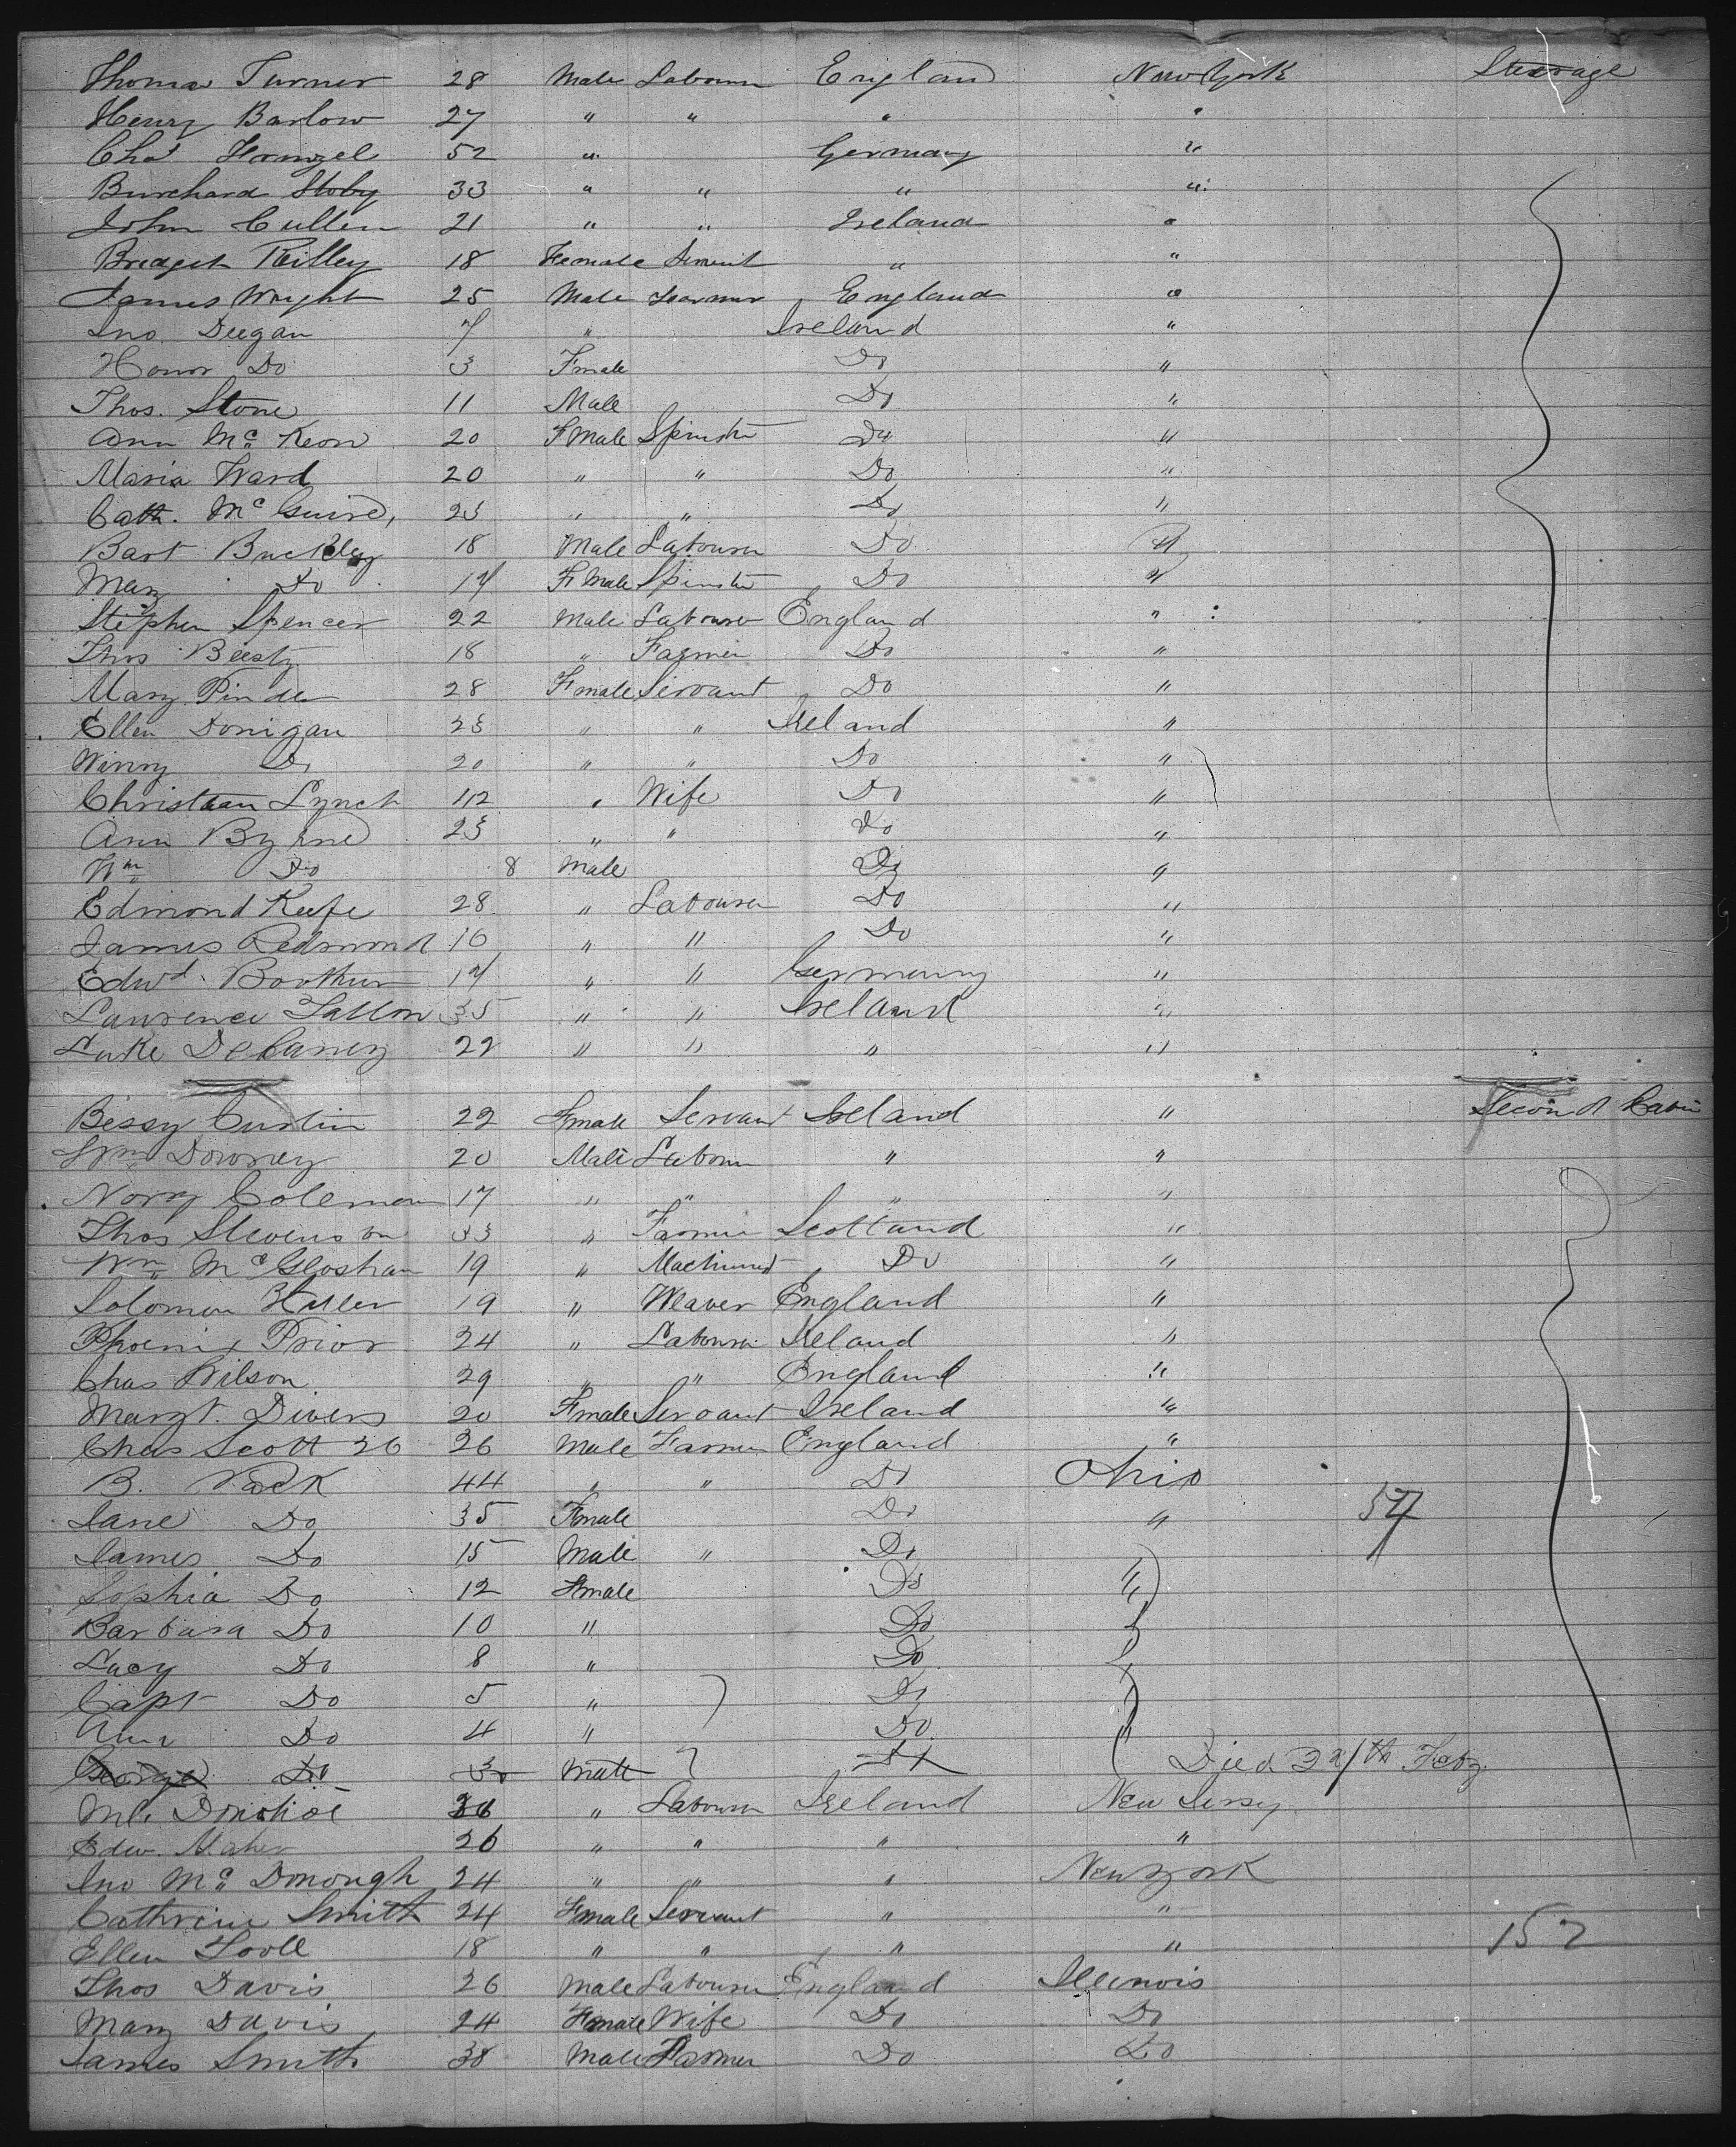 Thomas Turner 28 Male Labourer England New York Steerage
Henry Barlow 27 " " " "
Chas 52 " Germany "
Burchard Stoby 33 " " " "
John Cullen 21 " " Ireland "
Bridget Rilley 18 Female Servant " "
James Wright 25 Male Farmer England "
Jno. Deegan 7 " Ireland "
Honor Do 3 Fmale Do "
Thos. Stone 11 Male Do "
Ann Mc Keon 20 FMale Spinster Do "
Maria Ward 20 " " Do "
Cath. McGuire, 23 " " Do "
Bart Buckley 18 Male Labourer Do "
Mary Do 14 FMale Spinster Do "
Stephen Spencer 22 Male Labourer England "
Thos Beesty 18 " Farmer Do "
Mary Pinder 28 Fmale Servant Do "
Ellen Donigan 23 " " Ireland "
Winny Do 20 " " Do "
Christian Lynch 42 " Wife Do "
Ann Byrne 23 " " Do "
Wm Do 8 Male Do "
Edmond Keefe 28 " Labourer Do "
James Redmond 16 " " Do "
Edwd. 14 " " Germany "
Lawrence Fallon 35 " " Ireland "
Luke Delaney 22 " " " "
Bessy Curtin 22 Fmale Servant Ireland " Second Cabin
Wm Downey 20 Male Labourer " "
Norry Coleman 17 " " " "
Thos Stevenson 33 " Farmer Scotland "
Wm McGloshan 19 " Machinest Do "
Solomon Hiller 19 " Weaver England "
Phoenix Prior 24 " Labourer Ireland "
Chas Wilson 29 " " England "
Margt. Divers 20 Fmale Servant Ireland "
Chas Scott 26 26 Male Farmer England "
B. Peck 44 " " Do Ohio
Jane Do 35 Fmale Do " 57
James Do 15 Male " Do "
Sophia Do 12 Fmale Do "
Barbara Do 10 " Do "
Lucy Do 8 " Do "
Capt Do 5 " Do "
Ann Do 4 " Do "
George Do 3 Male Do Died 27th Feby.
Ml. Donohoe 36 " Labourer Ireland New Jersey
Edw. Maher 26 " " " "
Jno Mc Donough 24 " " " New York
Cathrine Smith 24 Fmale Servant " "
Ellen Toole 18 " " " " 152
Thos Davis 26 Male Labourer England Illinois
Mary Davis 24 Fmale Wife Do Do
James Smith 38 Male Farmer Do Do